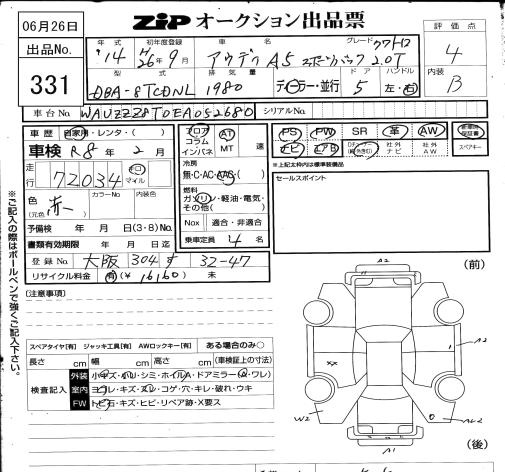 06月26日
ZiP オークション出品票
出品No. 331
年式 '14
初年度登録 H26年9月
車名 アウディ A5 スポーツバック 2.0T
グレード クワトロ
評価点 4
型式 DBA-8TCDNL
排気量 1980
ディーラー・並行
ドア 5
ハンドル 左・右
内装 B
車台No. WAUZZZ8T0EA052680
シリアルNo.
車歴 自家用・レンタ・( )
車検 R8年2月
走行 72034 キロ マイル
色 (元色) 赤
カラーNo.
内装色
予備検 年 月 日(3・8)No.
書類有効期限 年 月 日迄
登録No. 大阪 304 す 32-47
リサイクル料金 有(¥ 16160) 未
フロア コラム インパネ
AT MT 速
冷房 無・C・AC・AAC・( )
燃料 ガソリン・軽油・電気・その他( )
Nox 適合・非適合
乗車定員 4 名
PS PW SR 革 AW
ナビ エアB
社外ナビ 社外AW
保証書 スペアキー
*上記太枠内は標準装備品
セールスポイント
※ご記入の際はボールペンで強くご記入下さい。
(注意事項)
スペアタイヤ[有] ジャッキ工具[有] AWロックキー[有] ある場合のみ○
長さ cm 幅 cm 高さ cm (車検証上の寸法)
検査記入
外装 小キズ・小凹・シミ・ホイル(A・ドアミラー(A・ワレ)
室内 ヨゴレ・キズ・スレ・コゲ・穴・キレ・破れ・ウキ
FW トビ石・キズ・ヒビ・リペア跡・X要ス
(前)
A2
A2
XX
W2
A1
(後)